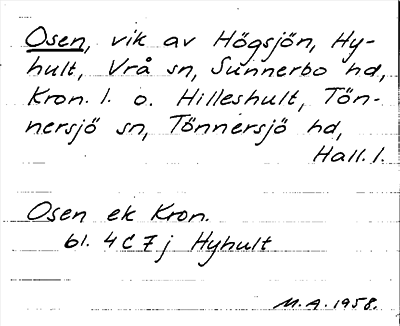 Osen, vik av Högsjön, Hy-
hult, Vrå sn, Sunnerbo hd,
Kron. l. o. Hilleshult, Tön-
nersjö sn, Tönnersjö hd,
Hall. l.
Osen ek Kron.
bl. 4C7j Hyhult
M.A. 1958.